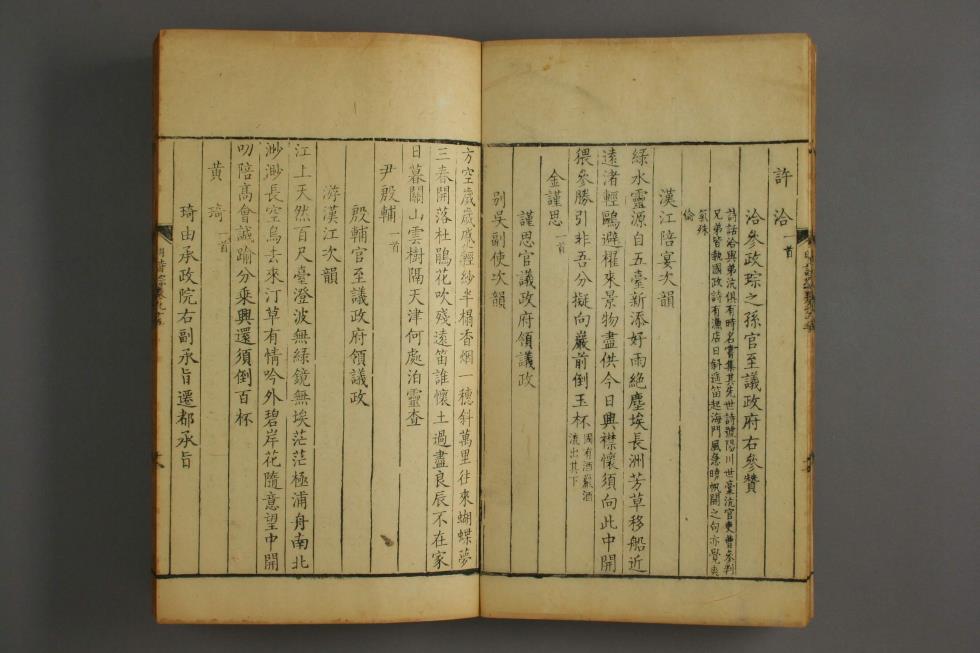 許 洽 一首
洽參政琮之孫官至議政府右參贊
詩話洽與弟沆俱有時名嘗集其先世詩號陽川世稾沆官吏曹參判
兄弟皆執國政詩有漁店日斜進笛起海門風急暗帆開之句亦覺爽
氣殊
倫
漢江陪宴次韻
綠水靈源自五臺新添好雨絶塵埃長洲芳草移船近
遠渚輕鷗避櫂來景物盡供今日興襟懷須向此中開
猥參勝引非吾分擬向巖前倒玉杯 國有酒巖酒
流出其下
金謹思 一首
謹思官議政府領議政
別吳副使次韻
方空歲歲感輕紗半榻香烟一穗斜萬里往來蝴蝶夢
三春開落杜鵑花吹殘遠笛誰懷土過盡良辰不在家
日暮關山雲樹隔天津何處泊靈查
尹殷輔 一首
殷輔官至議政府領議政
游漢江次韻
江上天然百尺臺澄波無綠鏡無埃茫茫極浦舟南北
渺渺長空鳥去來汀草有情吟外碧岸花隨意望中開
叨陪高會誠踰分乘興還須倒百杯
黄 琦 一首
琦由承政院右副承旨遷都承旨